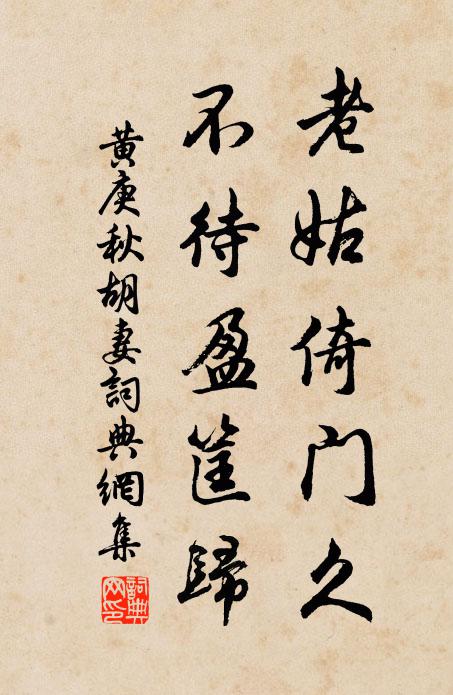 老姑倚门久
不待盈筐歸
黄庚秋胡妻詞典網集
詞典
网印